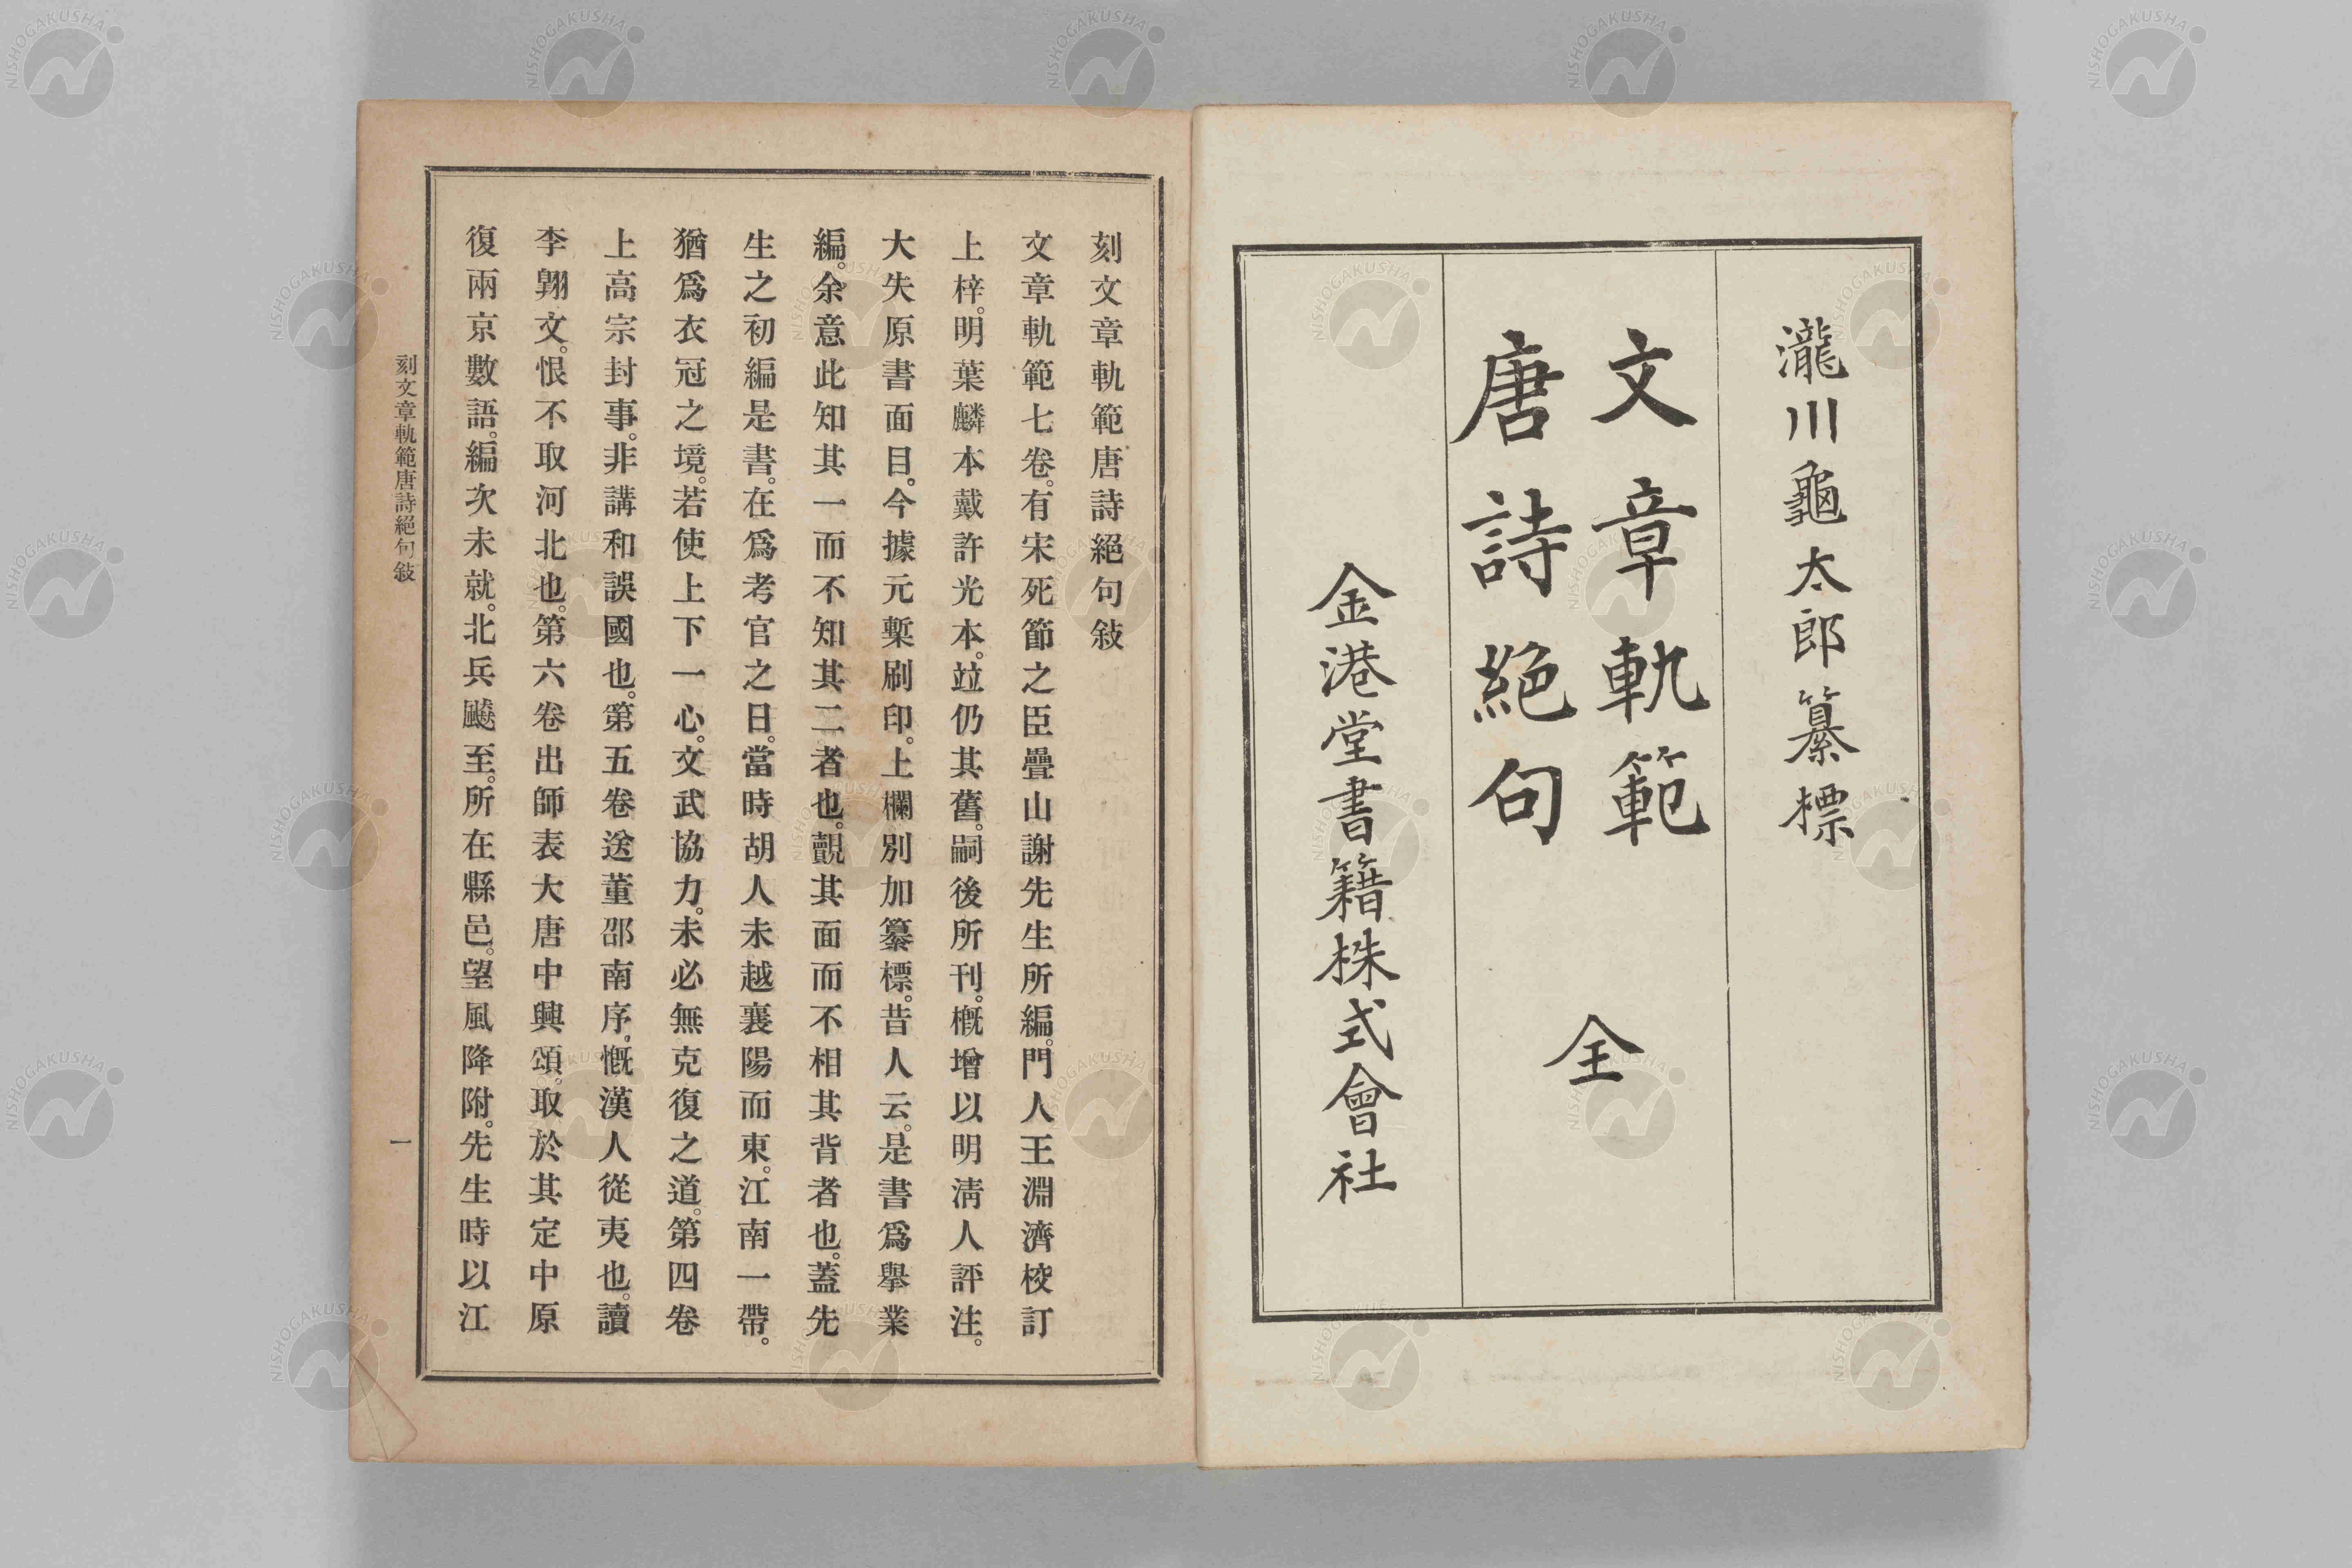 瀧川龜太郎纂標
文章軌範
唐詩絕句
全
金港堂書籍株式會社
刻文章軌範唐詩絕句敍
文章軌範七卷。有宋死節之臣疊山謝先生所編。門人王淵濟校訂
上梓。明葉麟本戴許光本。竝仍其舊。嗣後所刊。槪增以明淸人評注。
大失原書面目。今據元槧刷印。上欄別加纂標。昔人云。是書爲擧業
編。余意此知其一而不知其二者也。覿其面而不相其背者也。蓋先
生之初編是書。在爲考官之日。當時胡人未越襄陽而東。江南一帶。
猶爲衣冠之境。若使上下一心。文武協力。未必無克復之道。第四卷
上高宗封事。非講和誤國也。第五卷送董邵南序。慨漢人從夷也。讀
李翺文。恨不取河北也。第六卷出師表大唐中興頌。取於其定中原
復兩京數語。編次未就。北兵飇至。所在縣邑。望風降附。先生時以江
刻文章軌範唐詩絕句敍
一
NISHOGAKUSHA